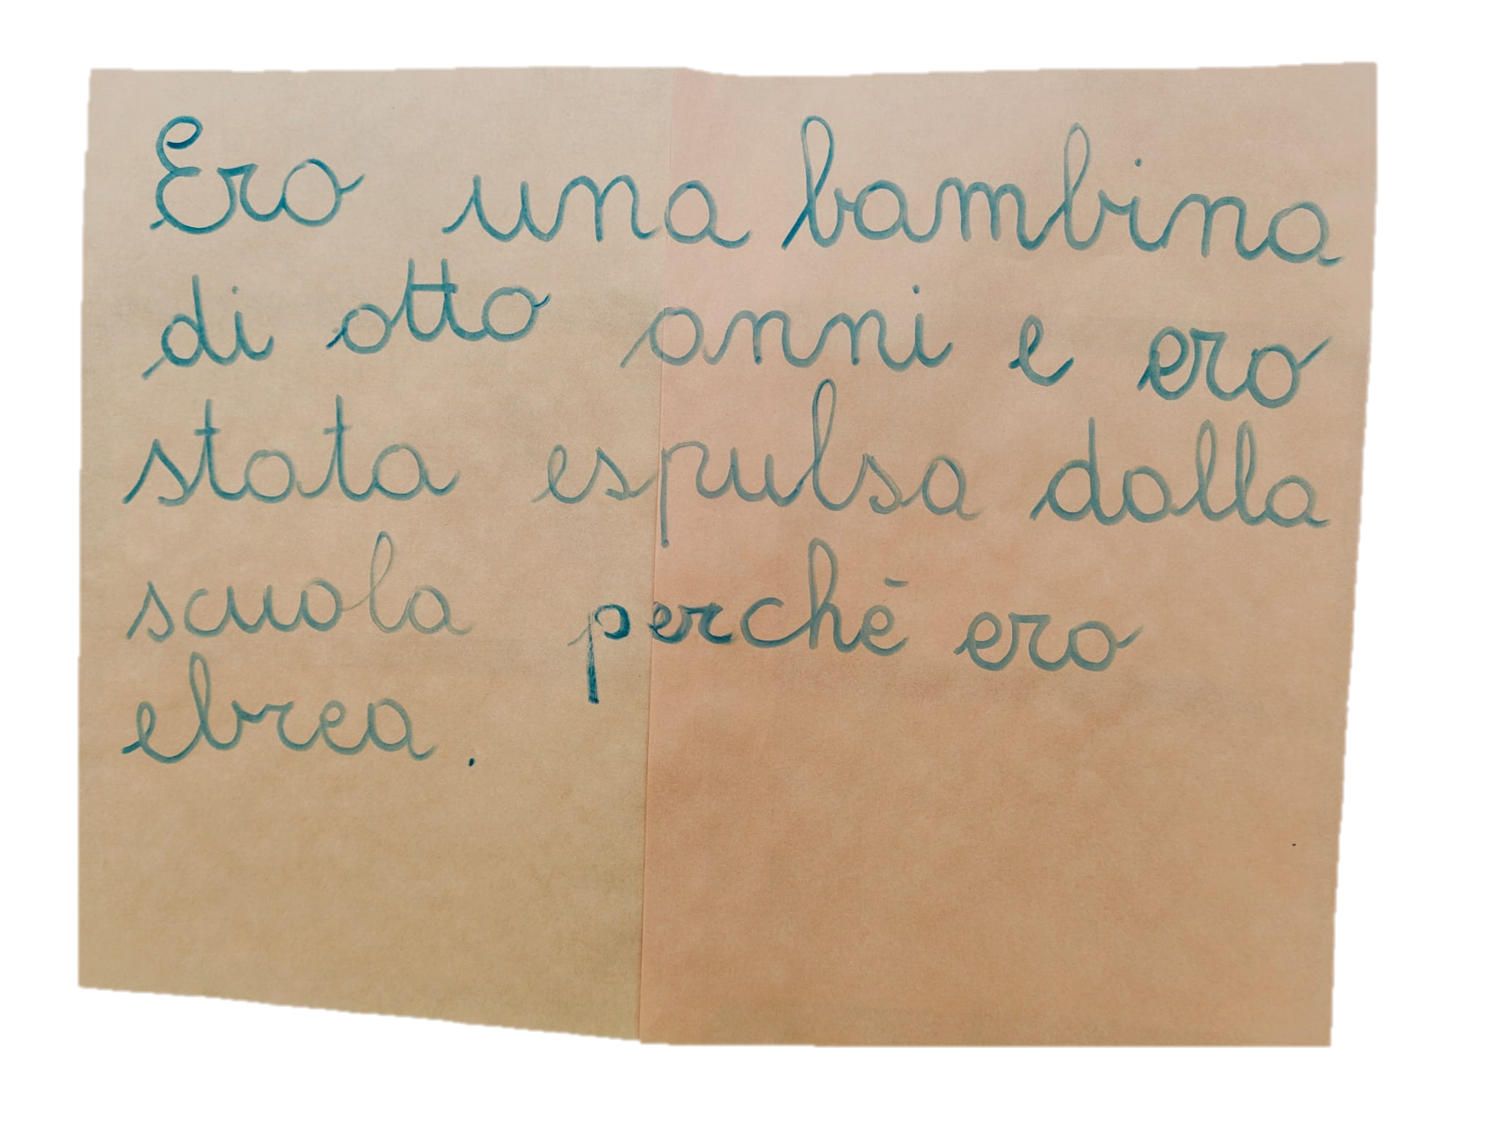 Ero una bambina
di otto anni e ero
stata espulsa dalla
scuola perchē ero
ebrea.